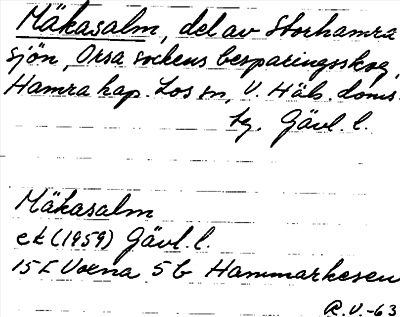 Mäkasalm, del av Storhamra
sjön, Orsa sockens besparingsskog,
Hamra kap. Los sn, V. Häls. doms.
Gävl. l.
Mäkasalm
ek (1959) Gävl. l.
15E Voxna 5b Hammarkesen
R.V.-63